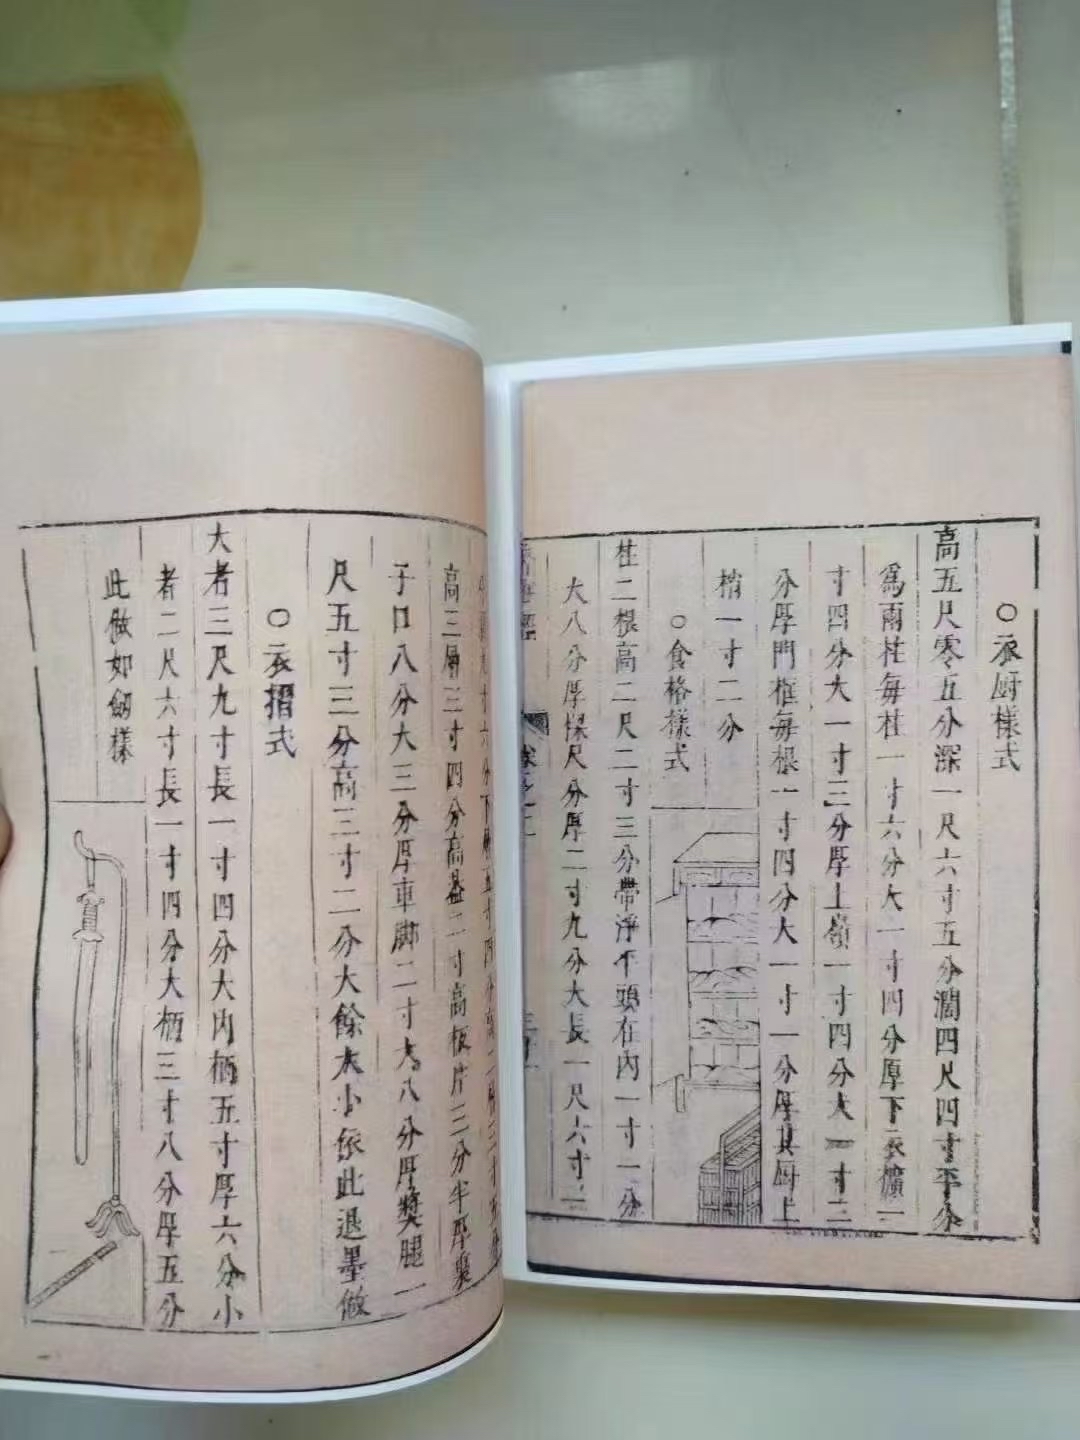 ○衣厨樣式
高五尺零五分深一尺六寸五分濶四尺四寸平分
為兩柱每柱一寸六分大一寸四分厚下衣櫎一
寸四分大一寸三分厚上嶺一寸四分大一寸二
分厚門框每根一寸四分大一寸一分厚其厨上
梢一寸二分
○食格樣式
柱二根高二尺二寸三分帶淨平頭在內一寸一分
大八分厚樑尺分厚二寸九分大長一尺六寸一
卷之二
寸六分
五寸四分
高三層三寸四分高蓋二寸高板片三分半厚裏
子口八分大三分厚車脚二寸大八分厚獎腿一
尺五寸三分高三寸二分大餘大小依此退墨做
○衣摺式
大者三尺九寸長一寸四分大內柄五寸厚六分小
者二尺六寸長一寸四分大柄三寸八分厚五分
此做如劒樣